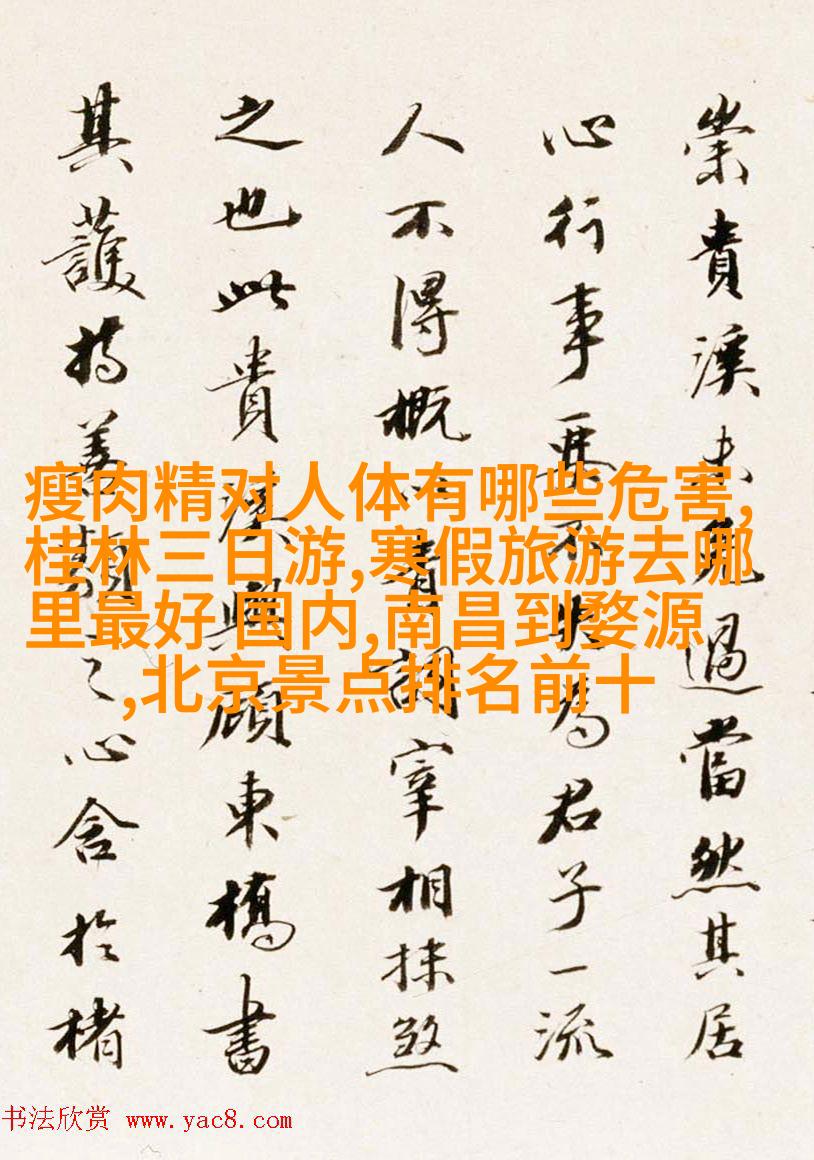 崇貴溪未免過當然其居
心行事要不失為君子一流
人不得概以青詞宰相抹煞
之也此貴溪與顧東橋書
其護持善類之心含於楮
瘦肉精对人体有哪些危害,
桂林三日游,寒假旅游去哪
里最好 国内,南昌到婺源
,北京景点排名前十
书法欣赏 www.yac8.com